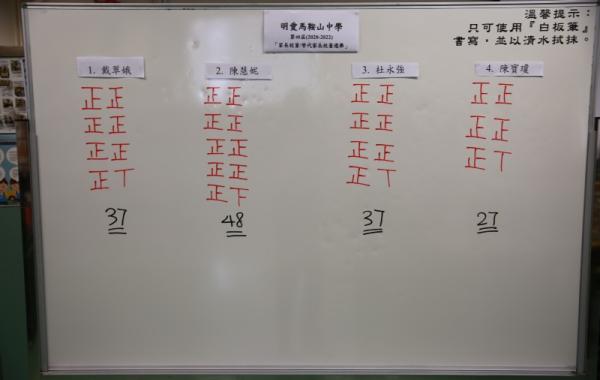 明愛馬鞍山中學
第四屆(2020-2022)
「家長校董/替代家長校董選舉」
溫馨提示:
只可使用『白板筆』
書寫,並以清水拭抹。
1. 戴翠娥
2. 陳慧妮
3. 杜永強
4. 陳寶瓊
正正
正正
正正
正丅
37
正正
正正
正正
正正
正下
48
正正
正正
正正
正丅
37
正正
正正
正丅
27